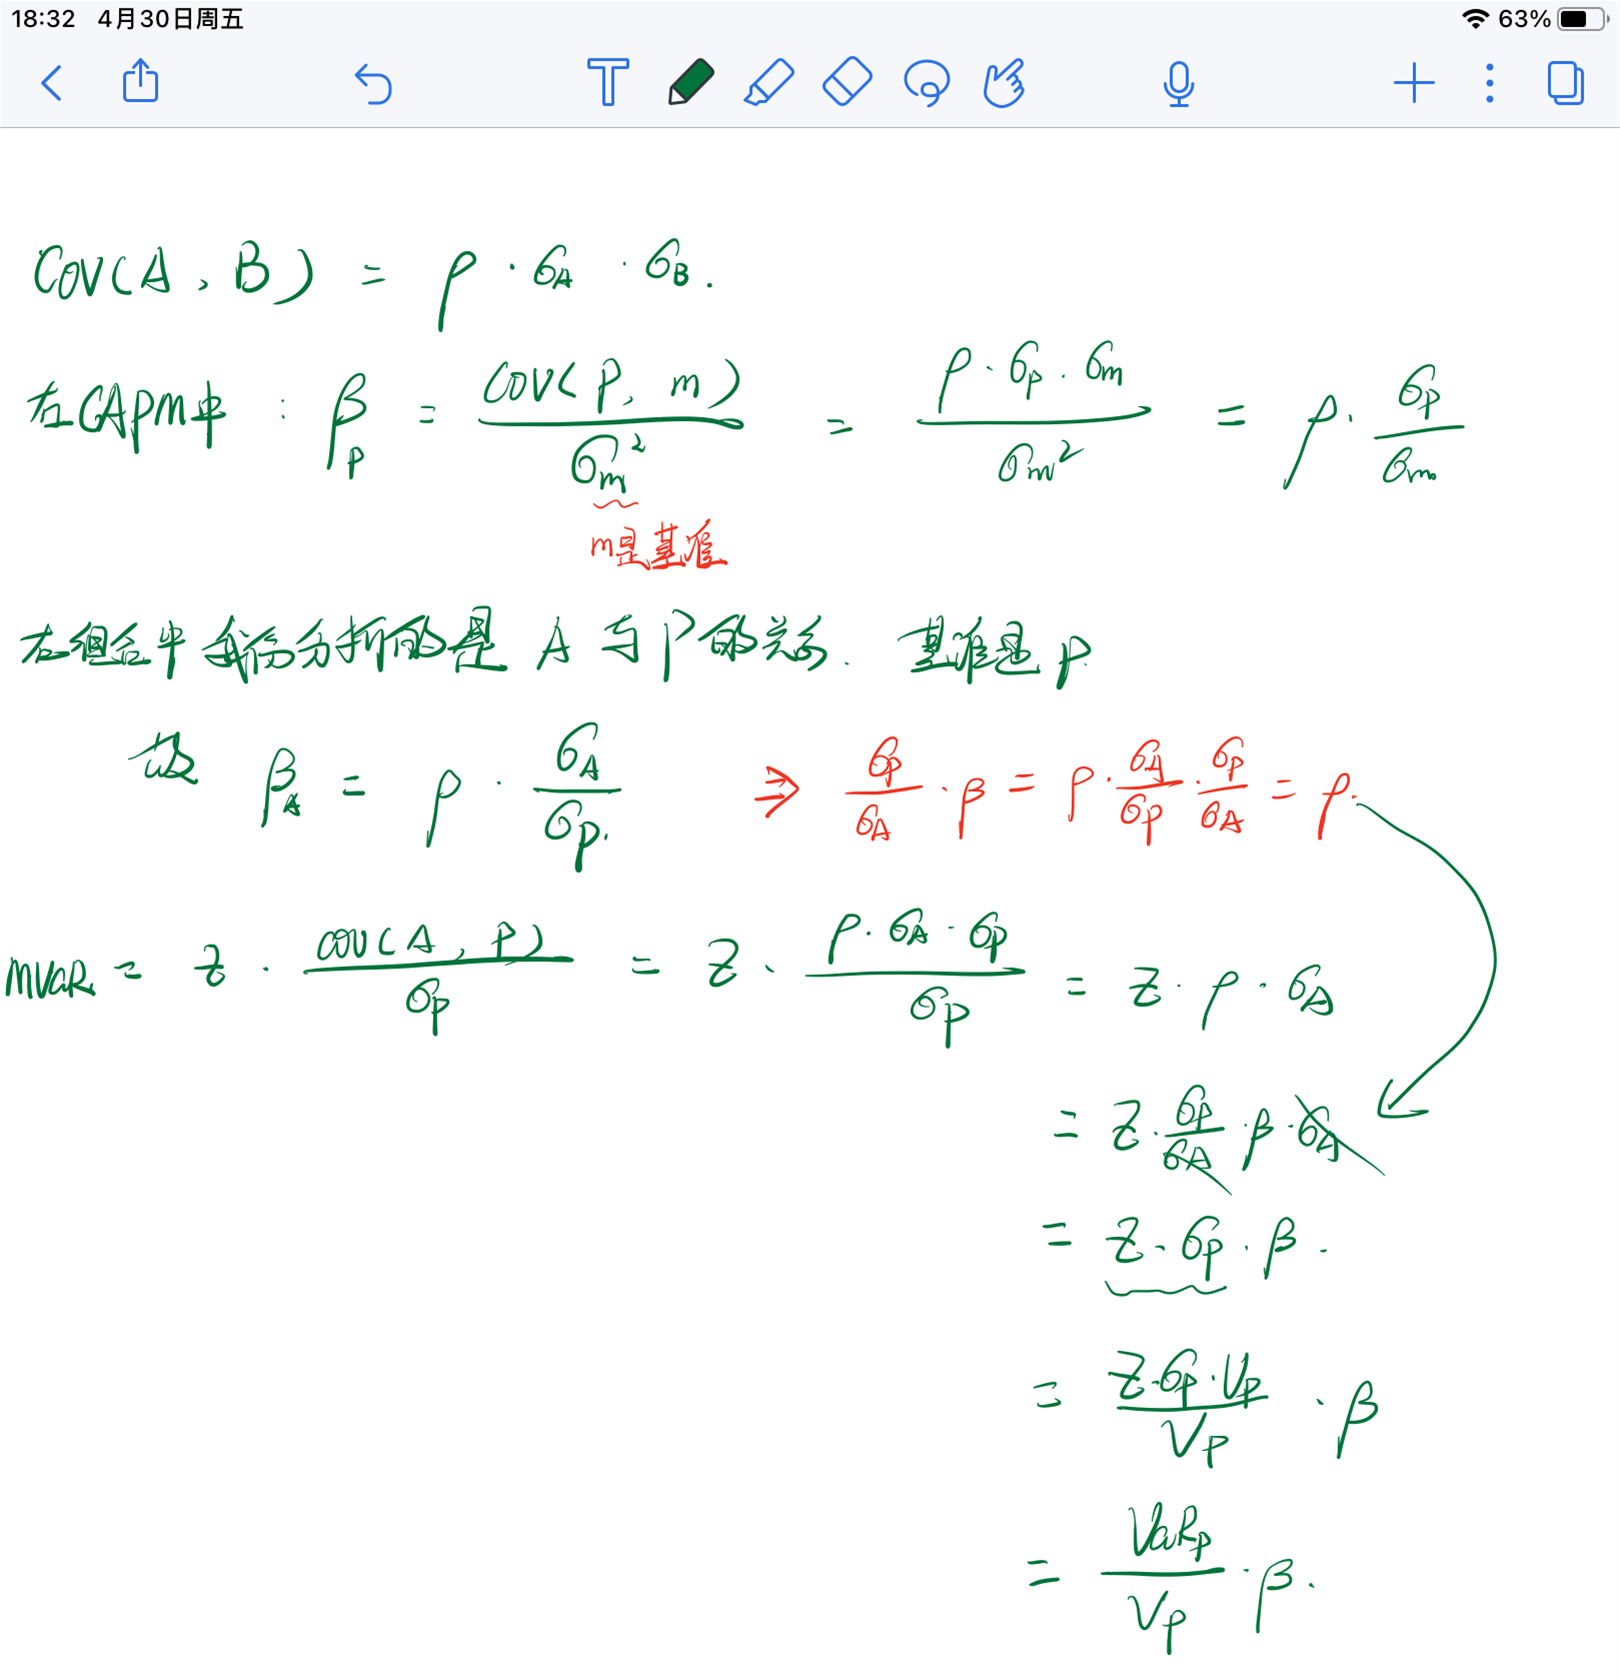 18:32 4月30日周五 63%
T
COV(A, B) = ρ · σA · σB.
在CAPM中 : βP = COV(P, m) / σm² = ρ · σP · σm / σm² = ρ · σP / σm
m是基准
在组合中我们分析的是 A 与 P 的关系. 基准是 P.
故 βA = ρ · σA / σP. ⇒ σP / σA · β = ρ · σA / σP · σP / σA = ρ.
MVaR = Z · COV(A, P) / σP = Z · ρ · σA · σP / σP = Z · ρ · σA
= Z · σP / σA · β · σA
= Z · σP · β .
= Z · σP · VP / VP · β
= VaRP / VP · β .